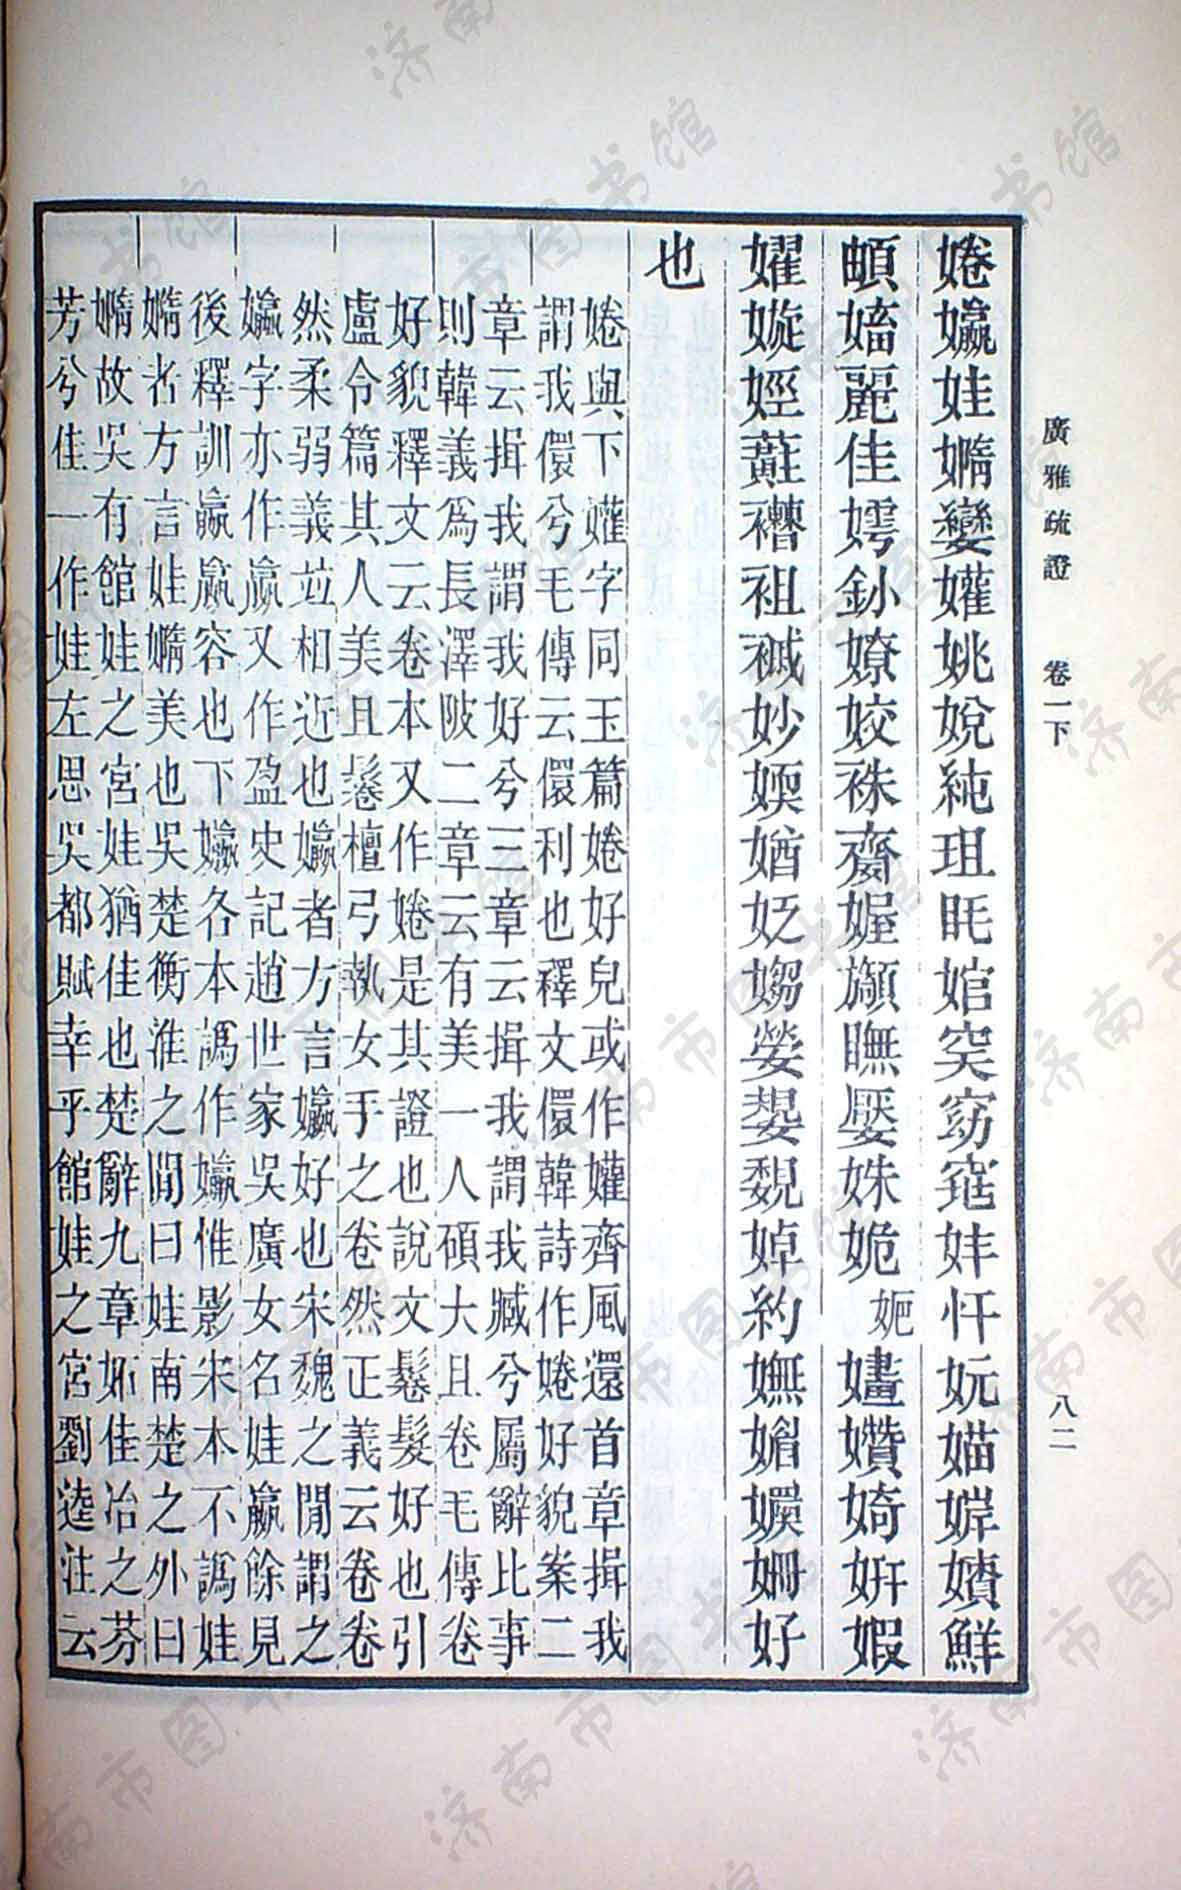 廣雅疏證 卷一下 八二
婘㜲娃嫷孌孉姚娧純珇眊婠窈窕妦忓妧媌婩嬻鮮
麗佳嫮釥嫽姣袾齌媉瞴姝姽嫿婍妍婽
嬥嫙褿袓妙媆媨姂媰嫈嫢婥約嫵媚姍好
也
婘與下孉字同玉篇婘好皃或作孉齊風還首章揖我
謂我儇兮毛傳云儇利也釋文儇韓詩作婘好貌案二
章云揖我謂我好兮三章云揖我謂我臧兮屬辭比事
則韓義爲長澤陂二章云有美一人碩大且卷毛傳卷
好貌釋文云卷本又作婘是其證也說文鬈髮好也引
盧令篇其人美且鬈檀弓執女手之卷然正義云卷卷
然柔弱義竝相近也㜲者方言㜲好也宋魏之閒謂之
㜲字亦作嬴又作盈史記趙世家吳廣女名娃嬴餘見
後釋訓嬴嬴容也下㜲各本譌作㜲惟影宋本不譌娃
嫷者方言娃嫷美也吳楚衡淮之閒曰娃南楚之外曰
嫷故吳有館娃之宮娃猶佳也楚辭九章妬佳冶之芬
芳兮佳一作娃左思吳都賦幸乎館娃之宮劉逵注云